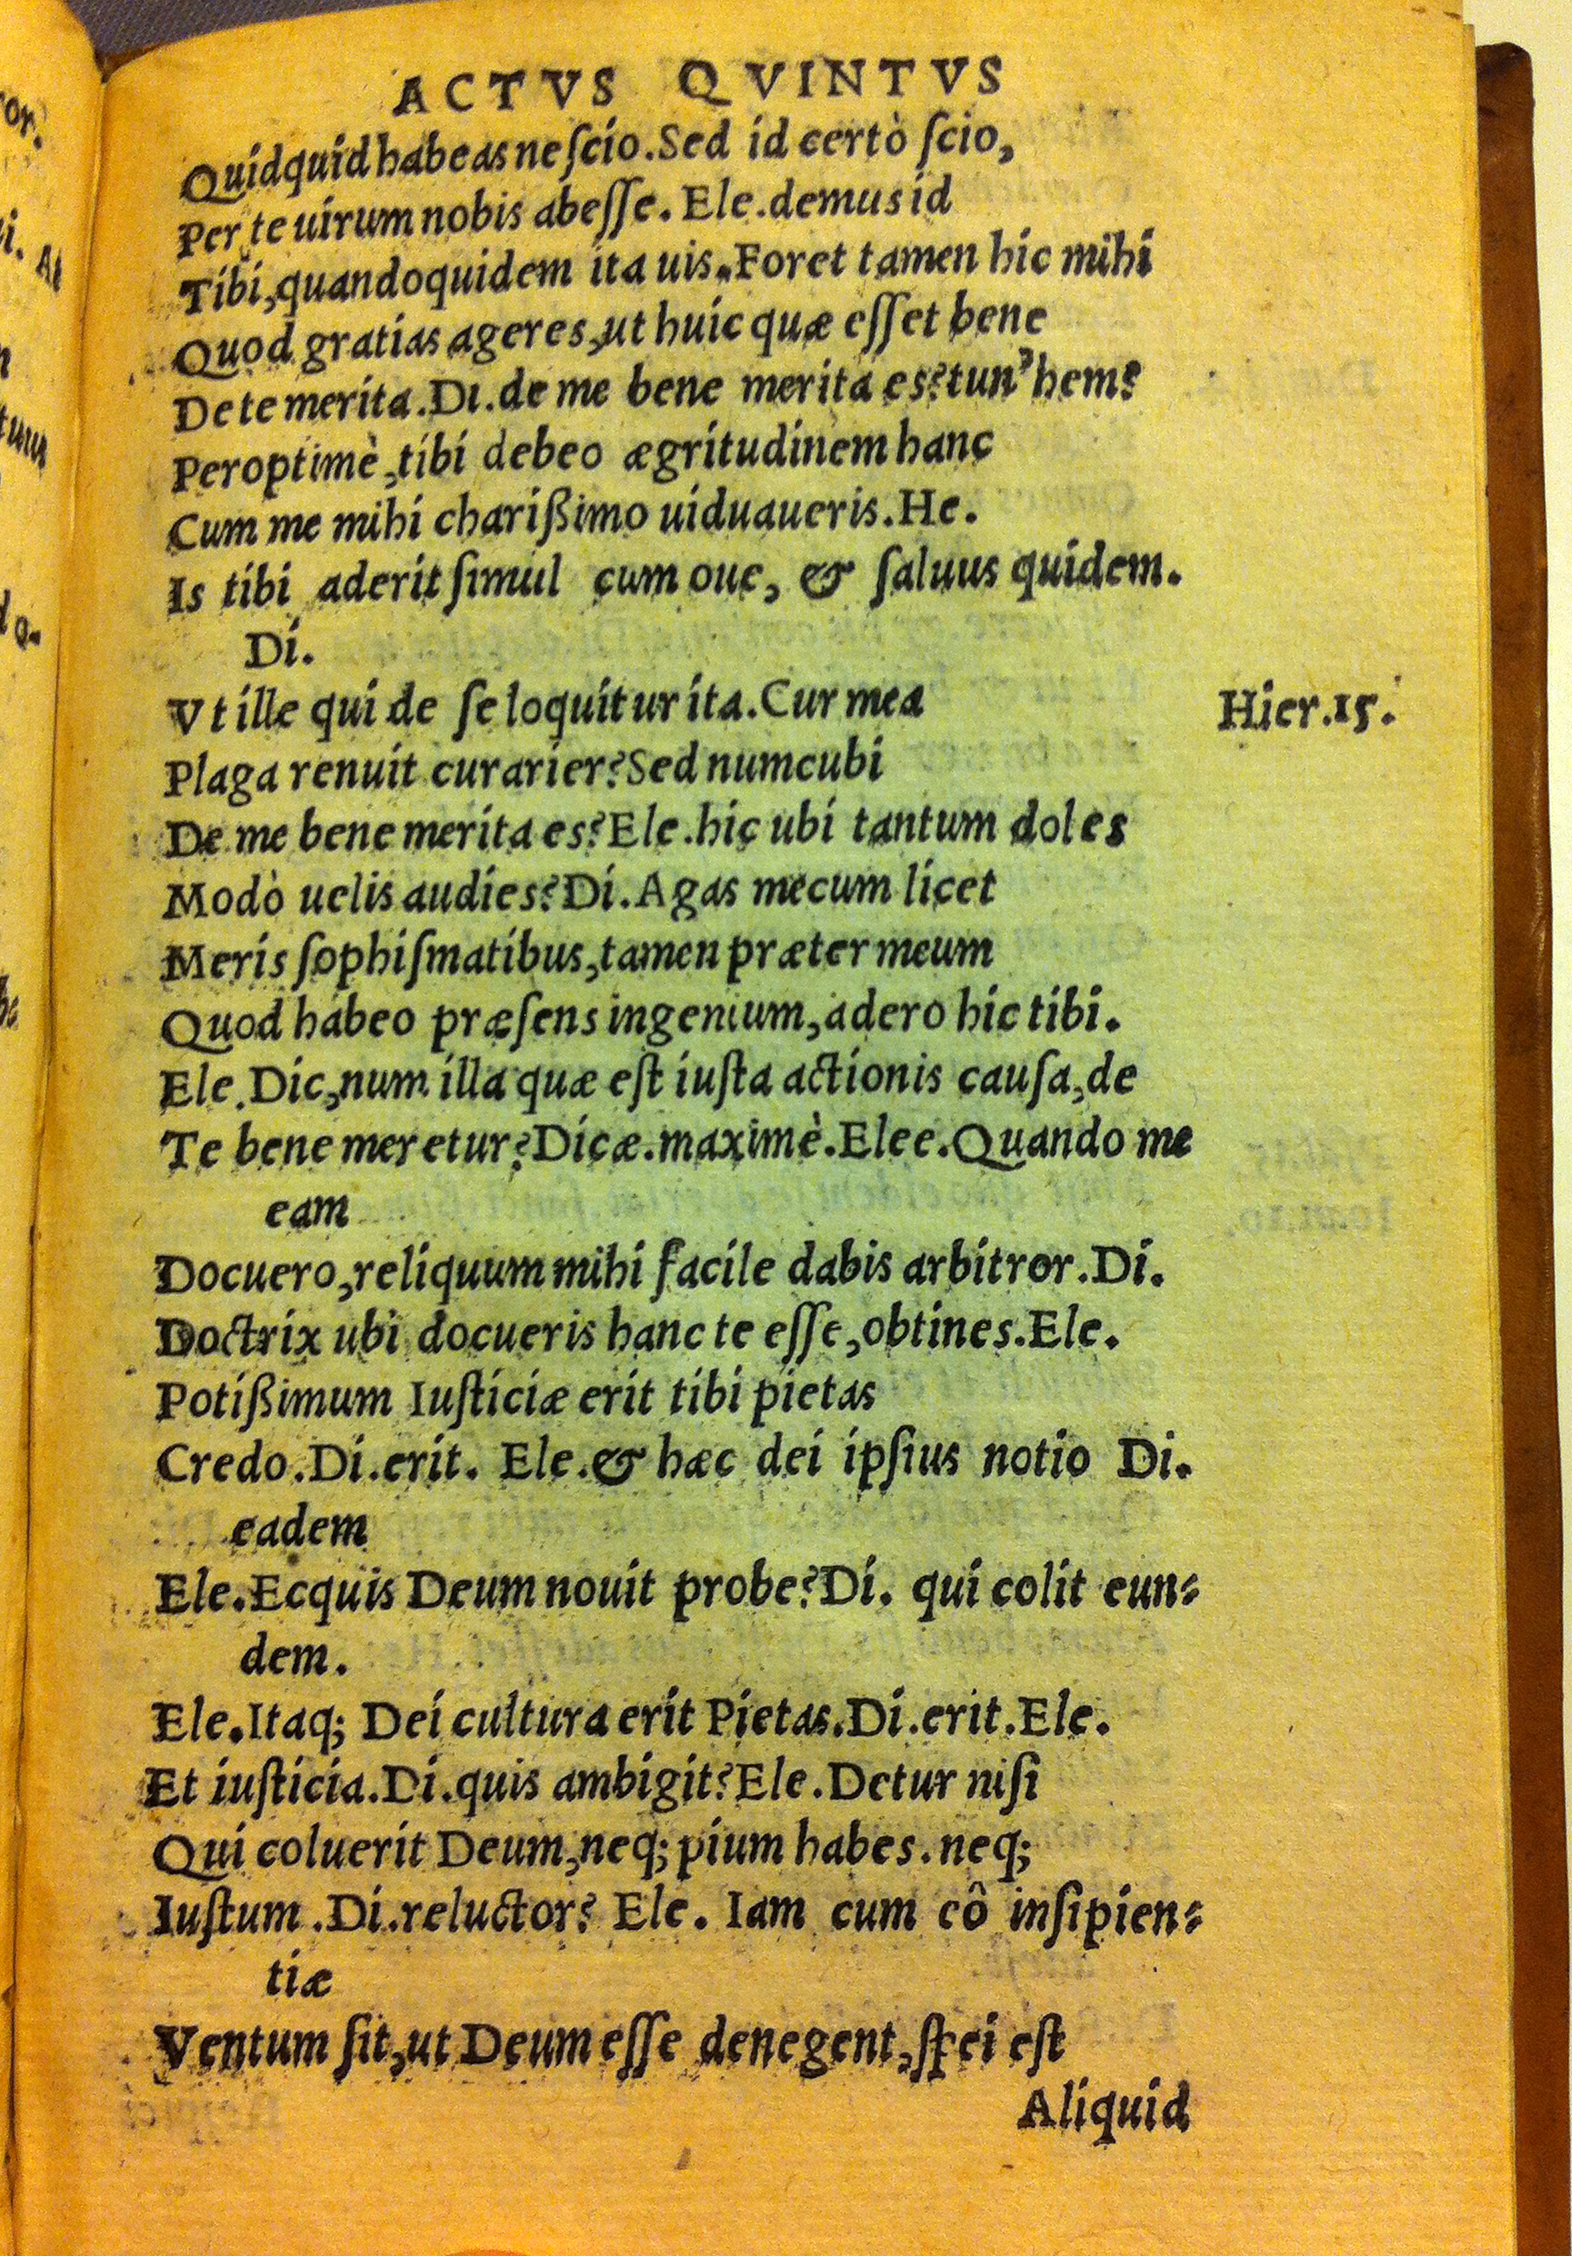 ACTVS QVINTVS
Quidquid habeas neſcio. Sed id certò ſcio,
Per te uirum nobis abeſſe. Ele. demus id
Tibi, quandoquidem ita uis. Foret tamen hic mihi
Quod gratias ageres, ut huic quæ eſſet bene
De te merita. Di. de me bene merita es? tun' hem?
Peroptimè, tibi debeo ægritudinem hanc
Cum me mihi charißimo uiduaueris. He.
Is tibi aderit ſimul cum oue, & ſaluus quidem.
Di.
Vt ille qui de ſe loquitur ita. Cur mea
Hier. 15.
Plaga renuit curarier? Sed numcubi
De me bene merita es? Ele. hic ubi tantum doles
Modò uelis audies? Di. Agas mecum licet
Meris ſophiſmatibus, tamen præter meum
Quod habeo præſens ingenium, adero hic tibi.
Ele. Dic, num illa quæ eſt iuſta actionis cauſa, de
Te bene meretur? Dicæ. maximè. Elee. Quando me
eam
Docuero, reliquum mihi facile dabis arbitror. Di.
Doctrix ubi docueris hanc te eſſe, obtines. Ele.
Potißimum Iuſticiæ erit tibi pietas
Credo. Di. erit. Ele. & hæc dei ipſius notio Di.
eadem
Ele. Ecquis Deum nouit probe? Di. qui colit eun=
dem.
Ele. Itaq; Dei cultura erit Pietas. Di. erit. Ele.
Et iuſticia. Di. quis ambigit? Ele. Detur niſi
Qui coluerit Deum, neq; pium habes. neq;
Iuſtum. Di. reluctor? Ele. Iam cum eô inſipien=
tiæ
Ventum ſit, ut Deum eſſe denegent, ſpei eſt
Aliquid